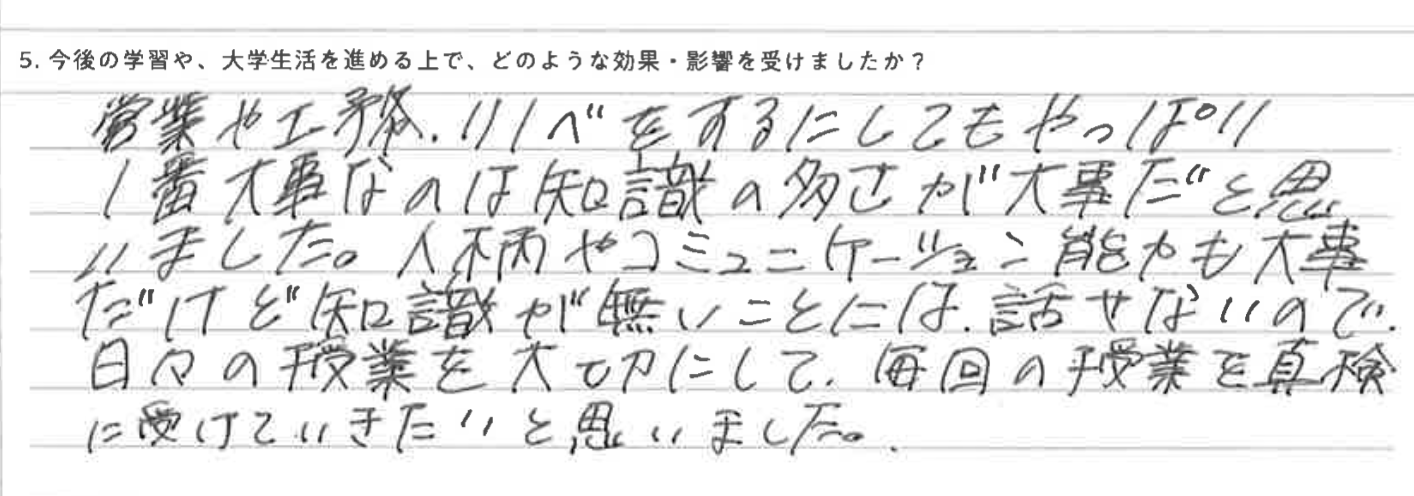 5. 今後の学習や、大学生活を進める上で、どのような効果・影響を受けましたか？
営業や工務、リノベをするにしてもやっぱり
1番大事なのは知識の多さが大事だと思
いました。人柄やコミュニケーション能力も大事
だけど知識が無いことには、話せないので、
日々の授業を大切にして、毎回の授業を真検
に受けていきたいと思いました。